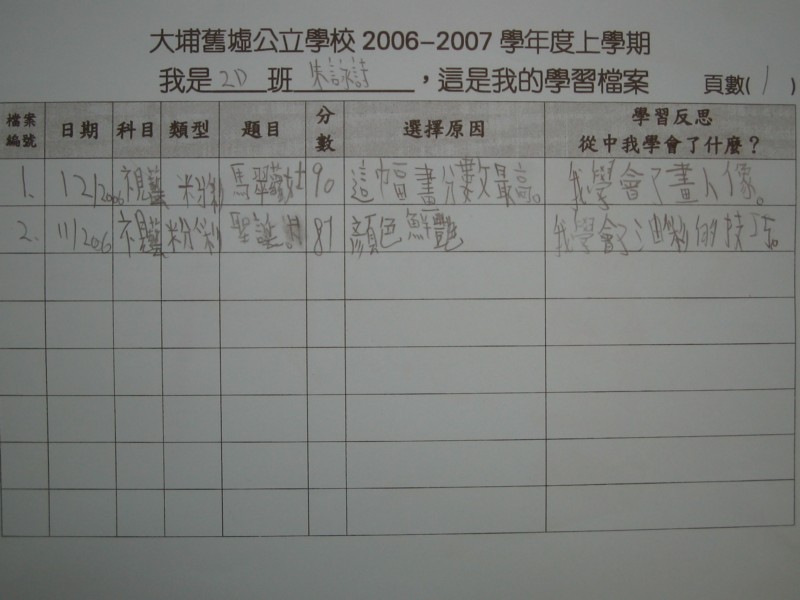 大埔舊墟公立學校 2006-2007 學年度上學期
我是 2D 班 朱詠詩 ，這是我的學習檔案 頁數( 1 )
檔案編號 日期 科目 類型 題目 分數 選擇原因 學習反思 從中我學會了什麼？
1. 12/2006 視藝 粉彩 90 這幅畫分數最高。 我學會了畫人像。
2. 11/206 視藝 粉彩 聖誕 87 顏色鮮艷 我學會了油彩的技巧。